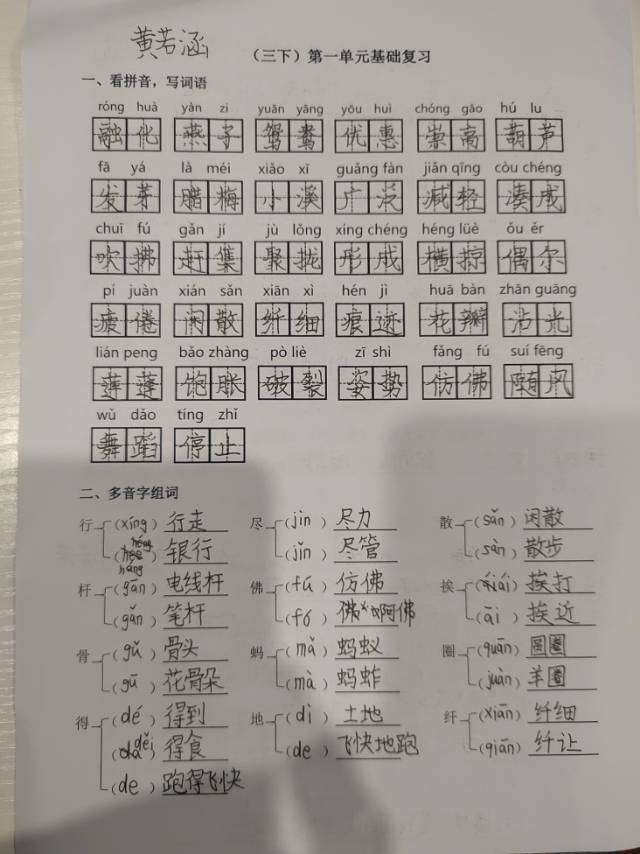 黄若涵
（三下）第一单元基础复习
一、看拼音，写词语
róng huà yàn zi yuān yāng yōu huì chóng gāo hú lu
融化 燕子 鸳鸯 优惠 崇高 葫芦
fā yá là méi xiǎo xī guǎng fàn jiǎn qīng còu chéng
发芽 腊梅 小溪 广泛 减轻 凑成
chuī fú gǎn jí jù lǒng xíng chéng héng lüè ǒu ěr
吹拂 赶集 聚拢 形成 横掠 偶尔
pí juàn xián sǎn xiān xì hén jì huā bàn zhān guāng
疲倦 闲散 纤细 痕迹 花瓣 沾光
lián peng bǎo zhàng pò liè zī shì fǎng fú suí fēng
莲蓬 饱胀 破裂 姿势 仿佛 随风
wǔ dǎo tíng zhǐ
舞蹈 停止
二、多音字组词
行 （xíng）行走 尽 （jìn）尽力 散 （sǎn）闲散
（háng）银行 （jǐn）尽管 （sàn）散步
杆 （gān）电线杆 佛 （fú）仿佛 挨 （ái）挨打
（gǎn）笔杆 （fó）佛 阿佛 （āi）挨近
骨 （gǔ）骨头 蚂 （mǎ）蚂蚁 圈 （quān）圆圈
（gū）花骨朵 （mà）蚂蚱 （juàn）羊圈
得 （dé）得到 地 （dì）土地 纤 （xiān）纤细
（děi）得食 （de）飞快地跑 （qiān）纤让
（de）跑得飞快